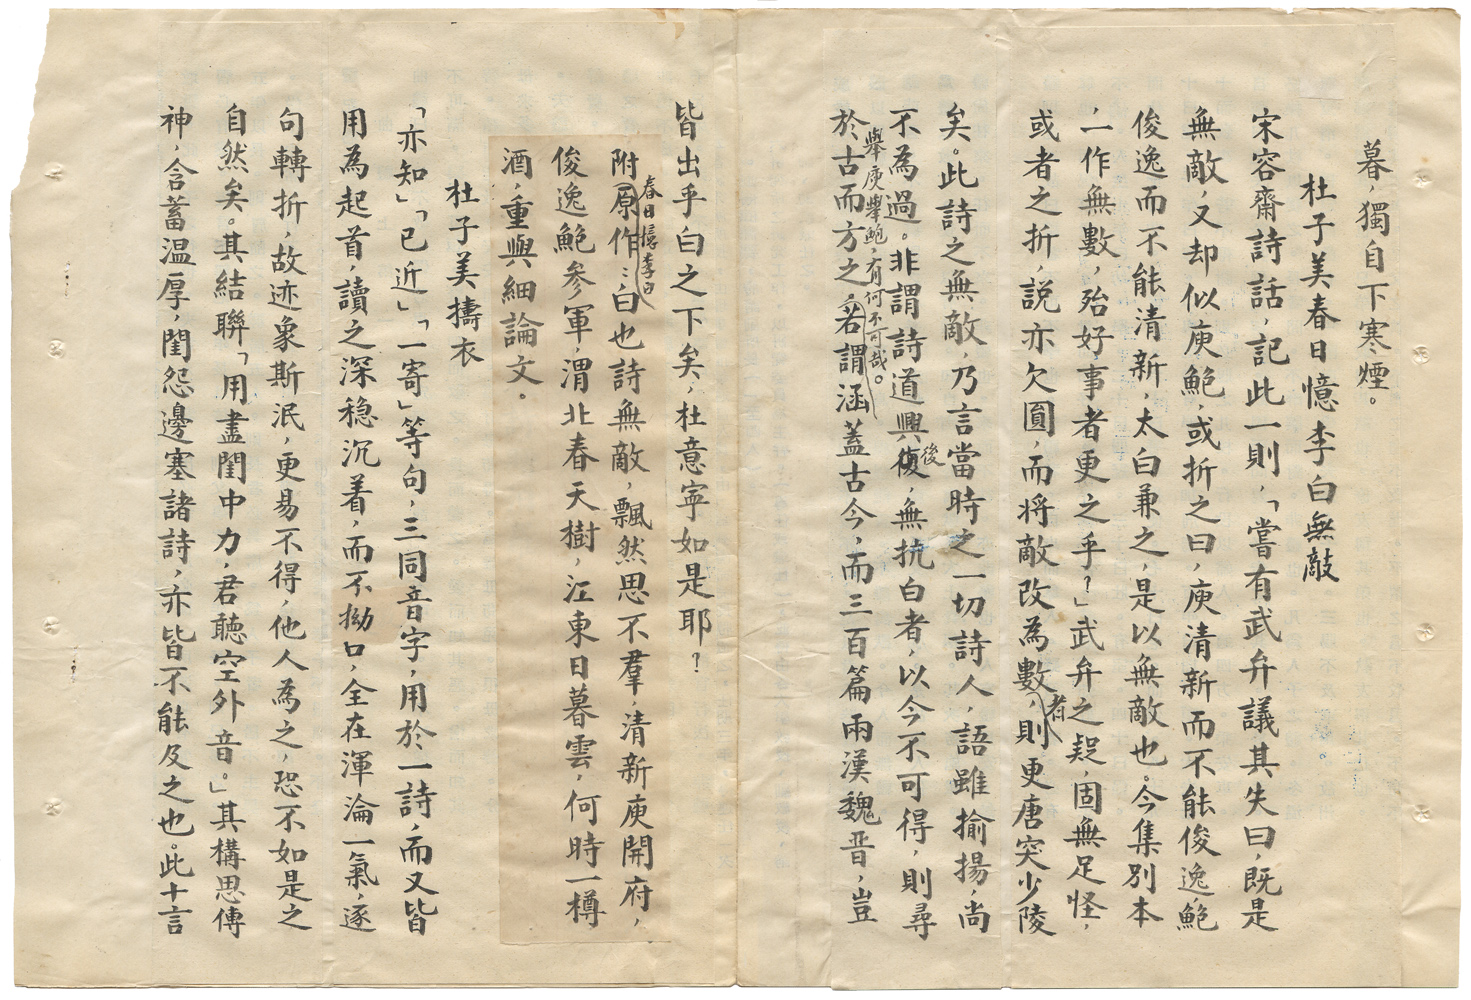 暮，獨自下寒煙。
杜子美春日憶李白無敵
宋容齋詩話，記此一則，「嘗有武弁議其失曰，既是
無敵，又却似庾鮑，或折之曰，庾清新而不能俊逸，鮑
俊逸而不能清新，太白兼之，是以無敵也。今集別本
，一作無數，殆好事者更之乎？」武弁之疑，固無足怪，
或者之折，説亦欠圓，而将敵改為數者，則更唐突少陵
矣。此詩之無敵，乃言當時之一切詩人，語雖揄揚，尚
不為過。非謂詩道興後，無抗白者，以今不可得，則尋
於古而方之，舉庾舉鮑，有何不可哉。若謂涵蓋古今，而三百篇兩漢魏晋，豈
皆出乎白之下矣，杜意寧如是耶？
附原作：春日憶李白 白也詩無敵，飄然思不羣，清新庾開府，
俊逸鮑參軍，渭北春天樹，江東日暮雲，何時一樽
酒，重與細論文。
杜子美擣衣
「亦知」「已近」「一寄」等句，三同音字，用於一詩，而又皆
用為起首，讀之深稳沉着，而不拗口，全在渾淪一氣，逐
句轉折，故迹象斯泯，更易不得，他人為之，恐不如是之
自然矣。其結聯「用盡閨中力，君聽空外音。」其構思傳
神，含蓄温厚，閨怨邊塞諸詩，亦皆不能及之也。此十言